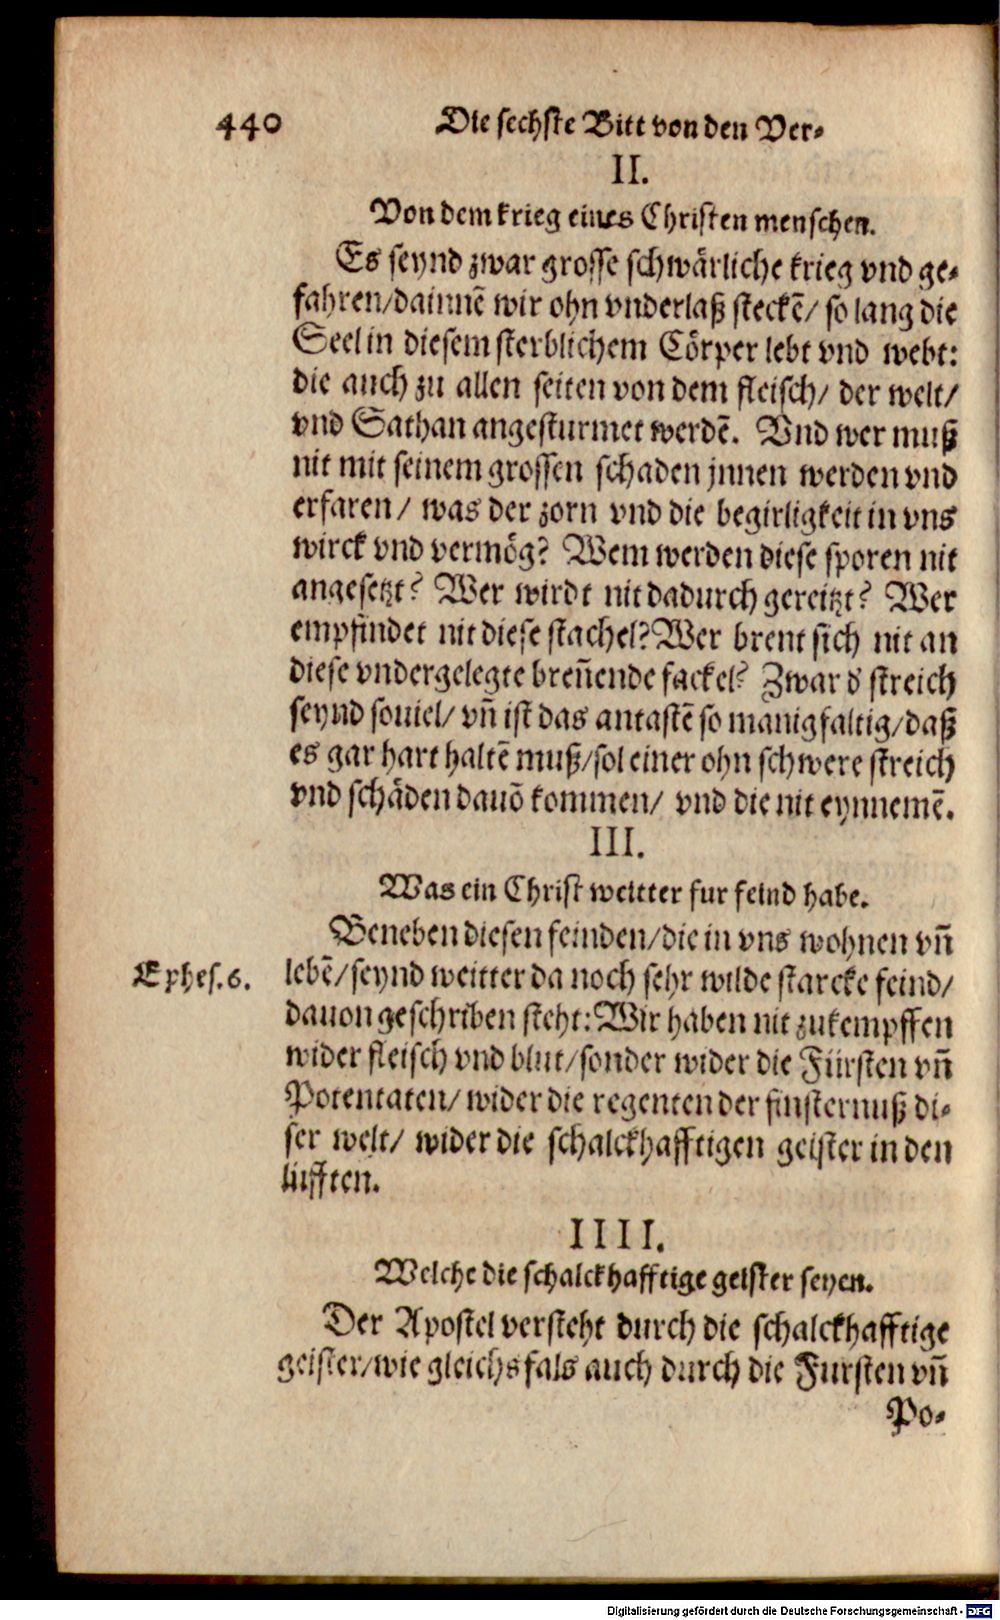 440 Die sechste Bitt von den Ver-
II.
Von dem krieg eines Christen menschen.
Es seynd zwar grosse schwärliche krieg vnd ge-
fahren/dainnẽ wir ohn vnderlaß steckẽ/ so lang die
Seel in diesem sterblichem Cörper lebt vnd webt:
die auch zu allen seiten von dem fleisch/ der welt/
vnd Sathan angesturmet werdẽ. Vnd wer muß
nit mit seinem grossen schaden jnnen werden vnd
erfaren/ was der zorn vnd die begirligkeit in vns
wirck vnd vermög? Wem werden diese sporen nit
angesetzt? Wer wirdt nit dadurch gereitzt? Wer
empfindet nit diese stachel? Wer brent sich nit an
diese vndergelegte breñende fackel? Zwar d' streich
seynd souiel/ vñ ist das antastẽ so manigfaltig/daß
es gar hart haltẽ muß/sol einer ohn schwere streich
vnd schäden dauõ kommen/ vnd die nit eynnemẽ.
III.
Was ein Christ weitter fur feind habe.
Beneben diesen feinden/die in vns wohnen vñ
Ephes. 6. lebẽ/seynd weitter da noch sehr wilde starcke feind/
dauon geschriben steht: Wir haben nit zukempffen
wider fleisch vnd blut/sonder wider die Fürsten vñ
Potentaten/ wider die regenten der finsternuß di-
ser welt/ wider die schalckhafftigen geister in den
lüfften.
IIII.
Welche die schalckhafftige geister seyen.
Der Apostel versteht durch die schalckhafftige
geister/wie gleichsfals auch durch die Fursten vñ
Po-
Digitalisierung gefördert durch die Deutsche Forschungsgemeinschaft - DFG